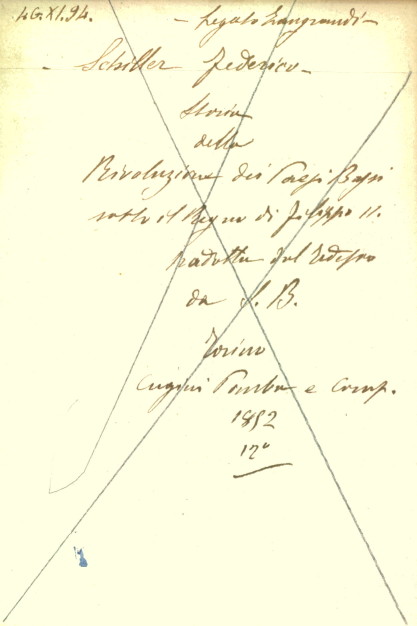 4G.XI.94.
- Legato Zangrandi -
Schiller Federico -
Storia
della
Rivoluzione dei Paesi Bassi
sotto il Regno di Filippo II.
tradotta dal Tedesco
da S. B.
Torino
Cugini Pomba e Comp.
1852
12°